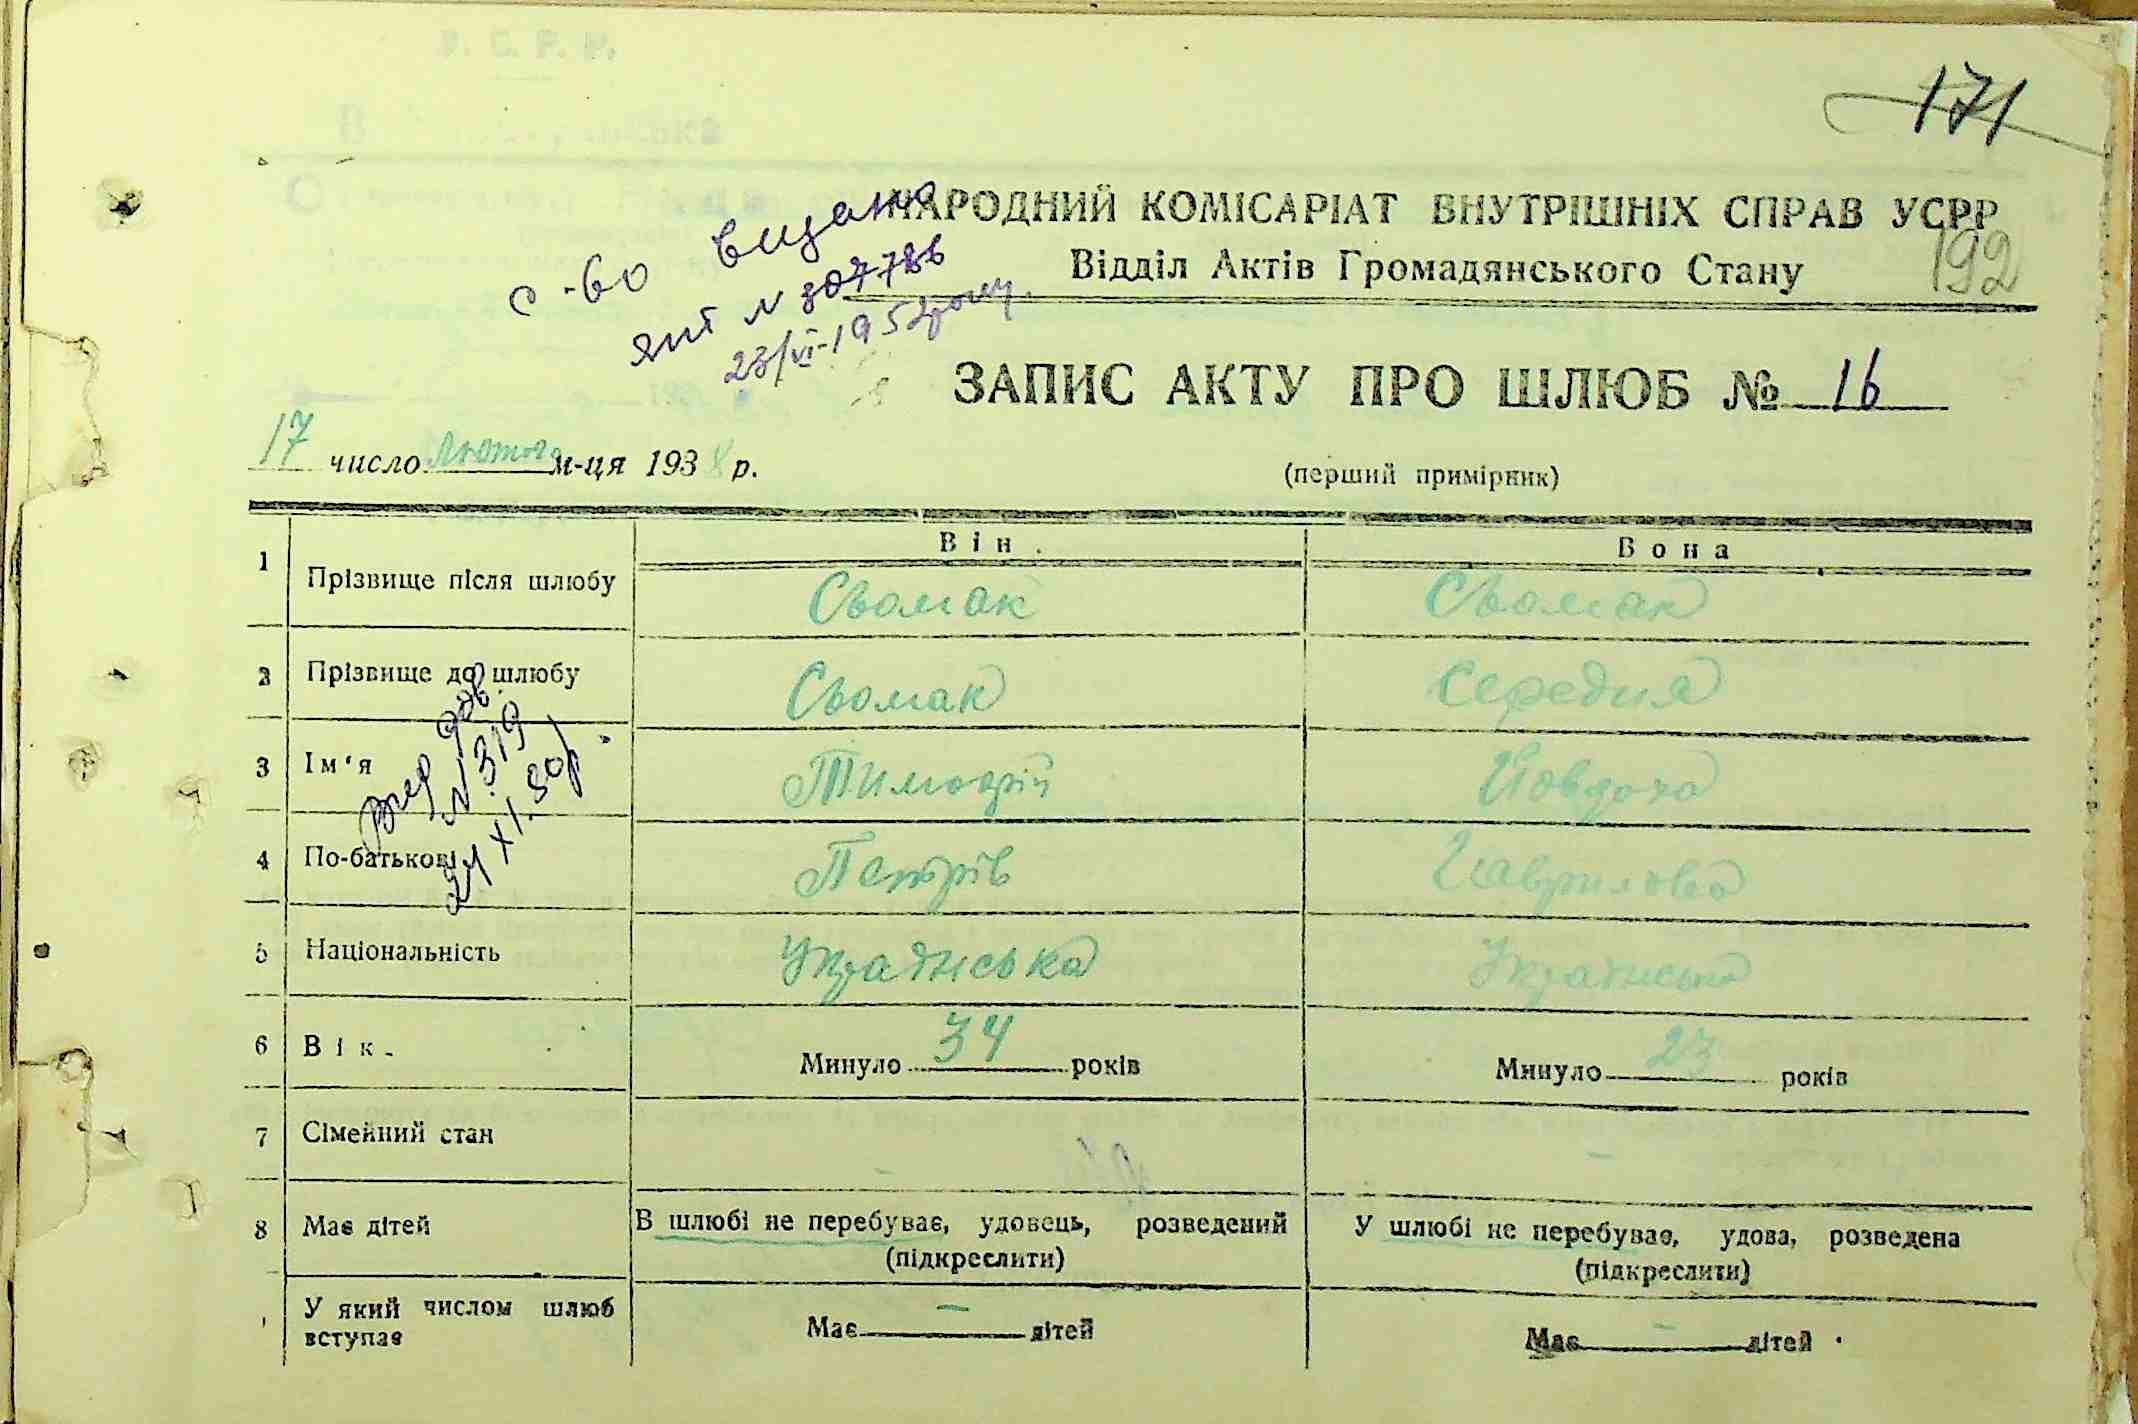 171
НАРОДНИЙ КОМІСАРІАТ ВНУТРІШНІХ СПРАВ УСРР
192
Відділ Актів Громадянського Стану
с-во видано
ЯПТ N 307786
23/VI-1952року.
ЗАПИС АКТУ ПРО ШЛЮБ № 16
17 число Лютого м-ця 1938 р.
(перший примірник)
Він. Вона
1 Прізвище після шлюбу Сьомак Сьомак
2 Прізвище до шлюбу Сьомак Середня
3 Ім'я Тимофій Йовдоха
4 По-батькові Петрів Гаврилова
N 319
21 XI.
5 Національність Українська Українська
6 Вік. Минуло 34 років Минуло 23 років
7 Сімейний стан - -
8 Має дітей В шлюбі не перебуває, удовець, розведений У шлюбі не перебуває, удова, розведена
(підкреслити) (підкреслити)
У який числом шлюб вступає Має - дітей Має - дітей